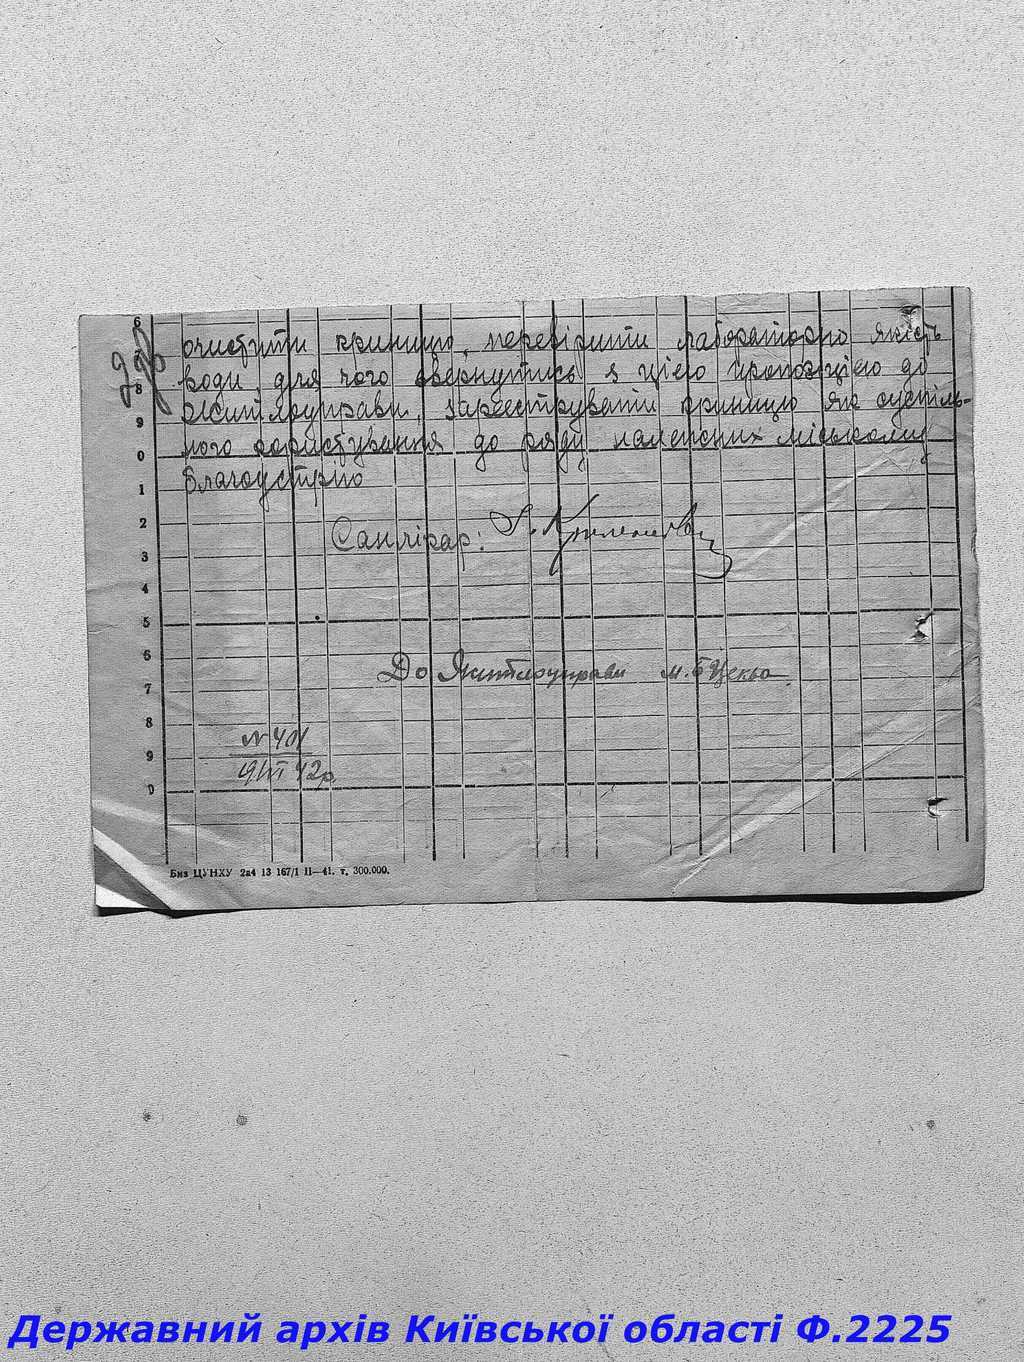 6
7
8
9
0
1
2
3
4
5
6
7
8
9
0
очистити криницю, перевірити лабораторно якість
води, для чого звернутись з цією пропозицією до
Житлоуправи, зареєструвати криницю як суспіль-
ного користування до ряду належних міському
благоустрію
Санлікар:
До Житлоуправи м. БЦеква
№ 401
9/III 42р.
Биз ЦУНХУ 2а4 13 167/1 II—41. т. 300.000.
Державний архів Київської області Ф.2225